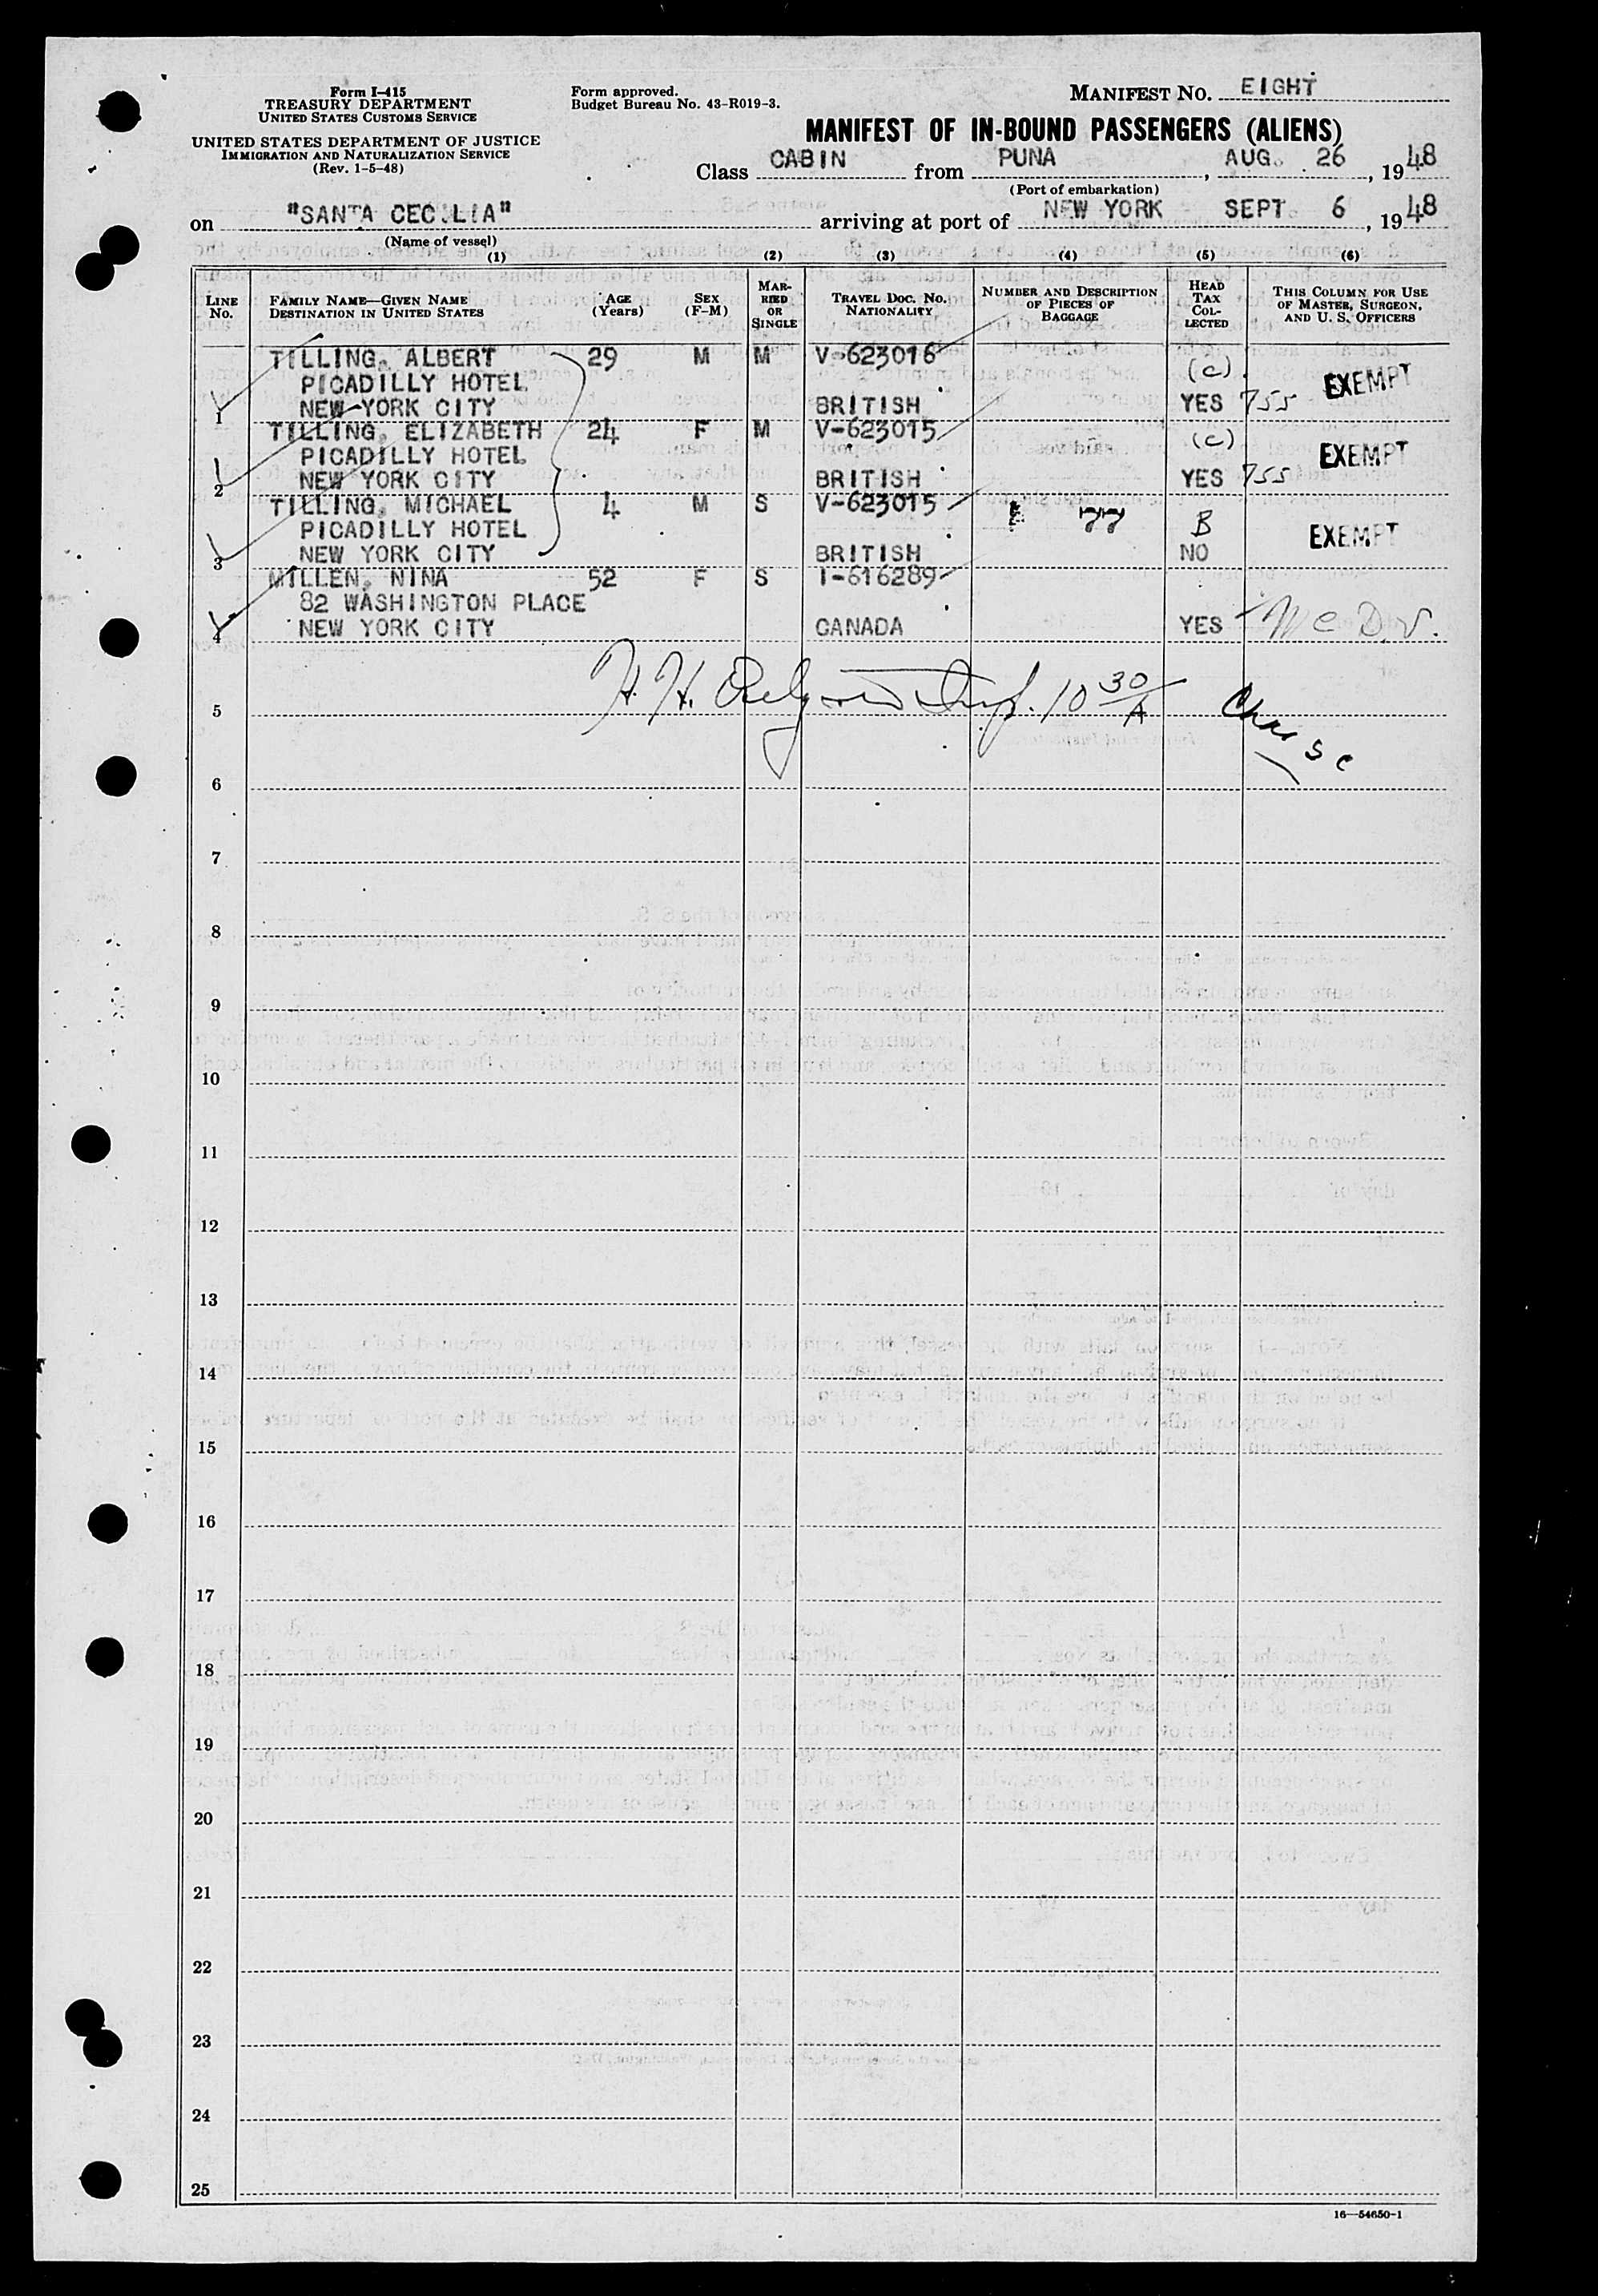 Form I-415
TREASURY DEPARTMENT
UNITED STATES CUSTOMS SERVICE
UNITED STATES DEPARTMENT OF JUSTICE
IMMIGRATION AND NATURALIZATION SERVICE
(Rev. 1-5-48)
Form approved.
Budget Bureau No. 43-R019-3.
MANIFEST NO. EIGHT
MANIFEST OF IN-BOUND PASSENGERS (ALIENS)
Class CABIN from PUNA, AUG. 26, 1948
(Port of embarkation)
on "SANTA CECILIA" arriving at port of NEW YORK SEPT 6, 1948
(Name of vessel)
(1) (2) (3) (4) (5) (6)
LINE No.
FAMILY NAME—GIVEN NAME
DESTINATION IN UNITED STATES
AGE (Years)
SEX (F-M)
MARRIED OR SINGLE
TRAVEL DOC. NO. NATIONALITY
NUMBER AND DESCRIPTION OF PIECES OF BAGGAGE
HEAD TAX COLLECTED
THIS COLUMN FOR USE OF MASTER, SURGEON, AND U. S. OFFICERS
TILLING, ALBERT 29 M M V-623016 (c)
PICADILLY HOTEL EXEMPT
1 NEW YORK CITY BRITISH YES 755
TILLING, ELIZABETH 24 F M V-623015 (c)
PICADILLY HOTEL EXEMPT
2 NEW YORK CITY BRITISH YES 755
TILLING, MICHAEL 4 M S V-623015
PICADILLY HOTEL B EXEMPT
3 NEW YORK CITY BRITISH NO
MILLEN, NINA 52 F S I-616289
82 WASHINGTON PLACE
4 NEW YORK CITY CANADA YES
H. H. Insp. 10 30/A
5
6
7
8
9
10
11
12
13
14
15
16
17
18
19
20
21
22
23
24
25
16—54650-1